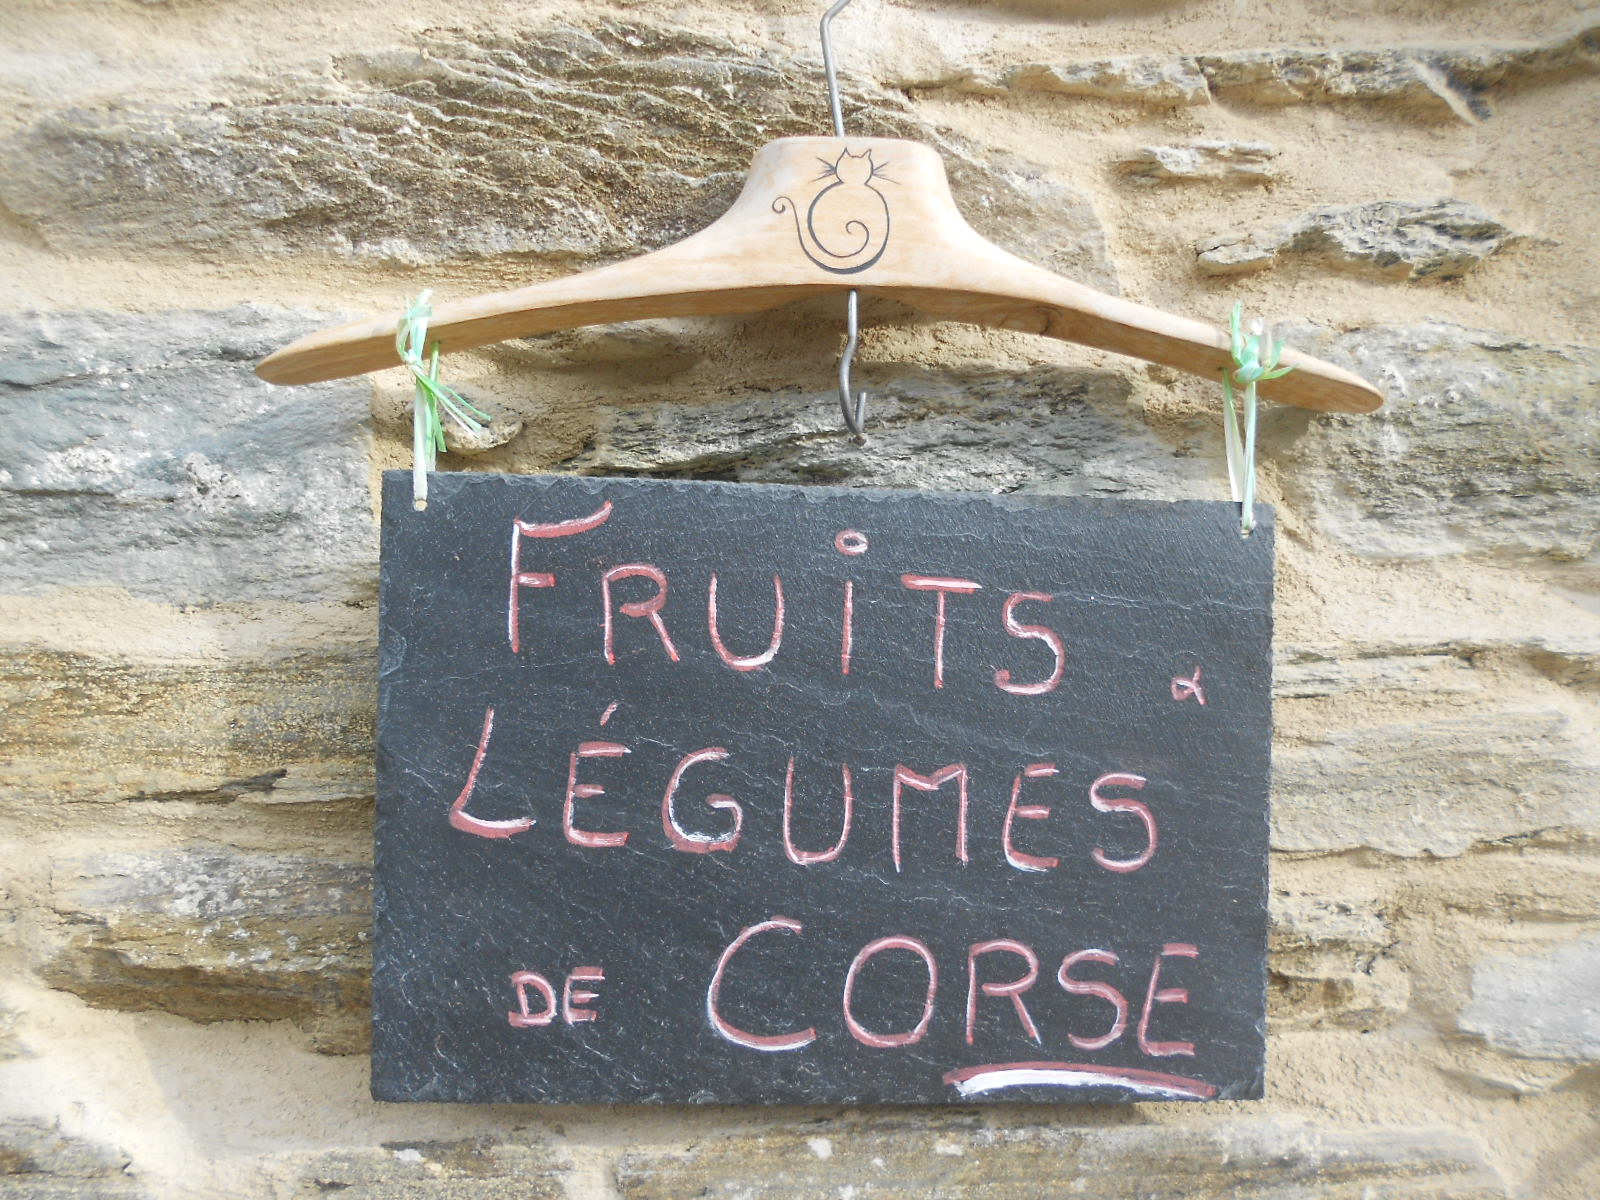 FRUiTS &
LÉGUMES
DE CORSE